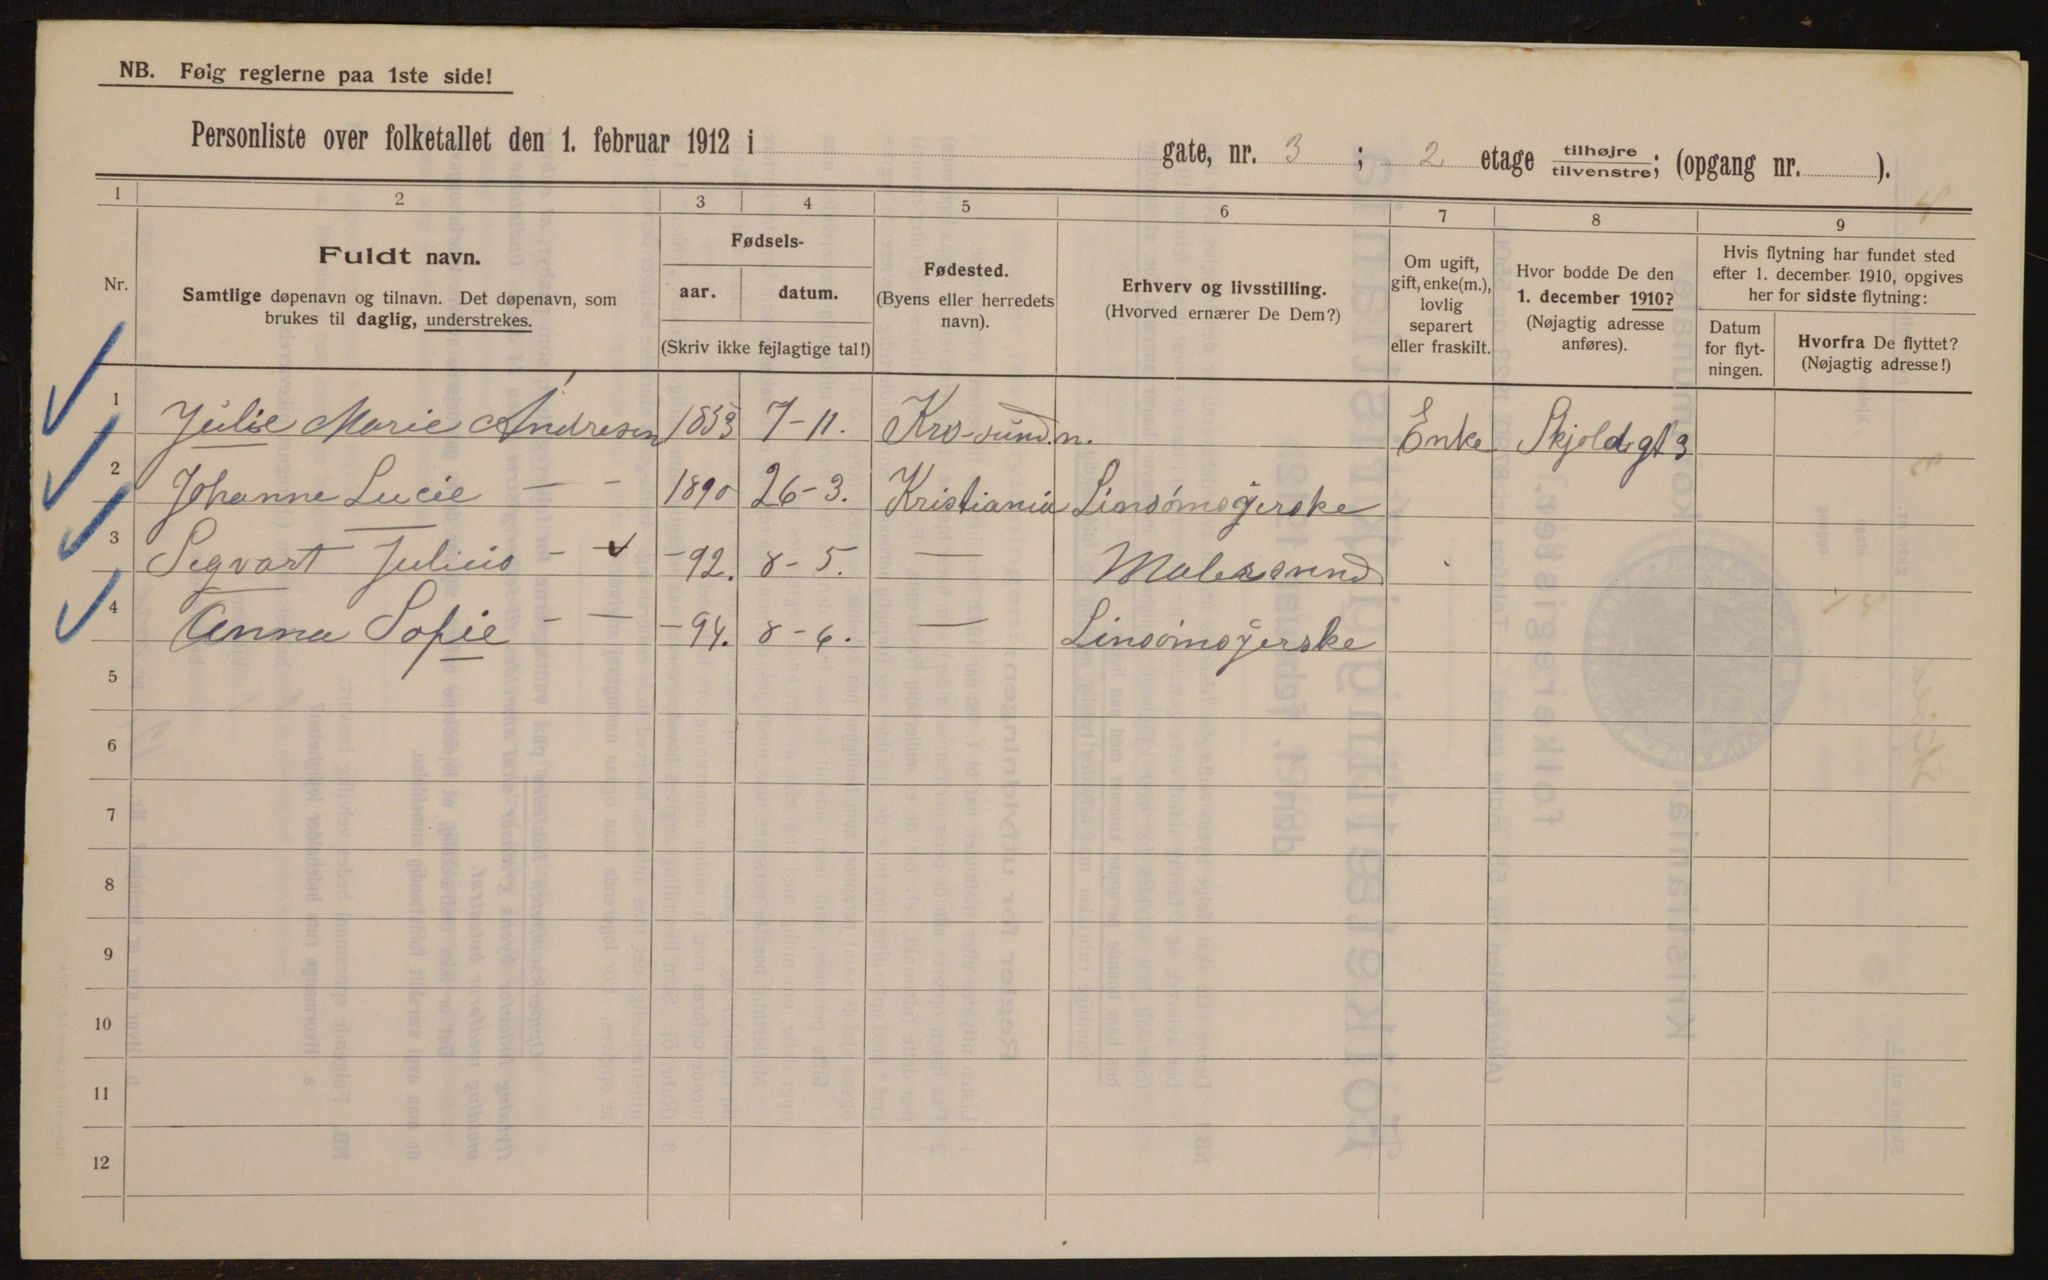 NB. Følg reglerne paa 1ste side!
Personliste over folketallet den 1. februar 1912 i gate, nr. 3 ; 2 etage tilhøjre tilvenstre; (opgang nr. ).
1 2 3 4 5 6 7 8 9
Nr.
Fuldt navn.
Samtlige døpenavn og tilnavn. Det døpenavn, som
brukes til daglig, understrekes.
Fødsels-
aar. datum.
(Skriv ikke fejlagtige tal!)
Fødested.
(Byens eller herredets
navn).
Erhverv og livsstilling.
(Hvorved ernærer De Dem?)
Om ugift,
gift, enke(m.),
lovlig
separert
eller fraskilt.
Hvor bodde De den
1. december 1910?
(Nøjagtig adresse
anføres).
Hvis flytning har fundet sted
efter 1. december 1910, opgives
her for sidste flytning:
Datum
for flyt-
ningen.
Hvorfra De flyttet?
(Nøjagtig adresse!)
1 Julie Marie Andresen 1853 7-11. Enke Skjoldgt 3
2 Johanne Lucie — - 1890 26-3. Kristiania Linsømsyerske
3 Segvart Julius - - -92. 8-5. —
4 Anna Sofie - — -94. 8-6. — Linsømsyerske
5
6
7
8
9
10
11
12